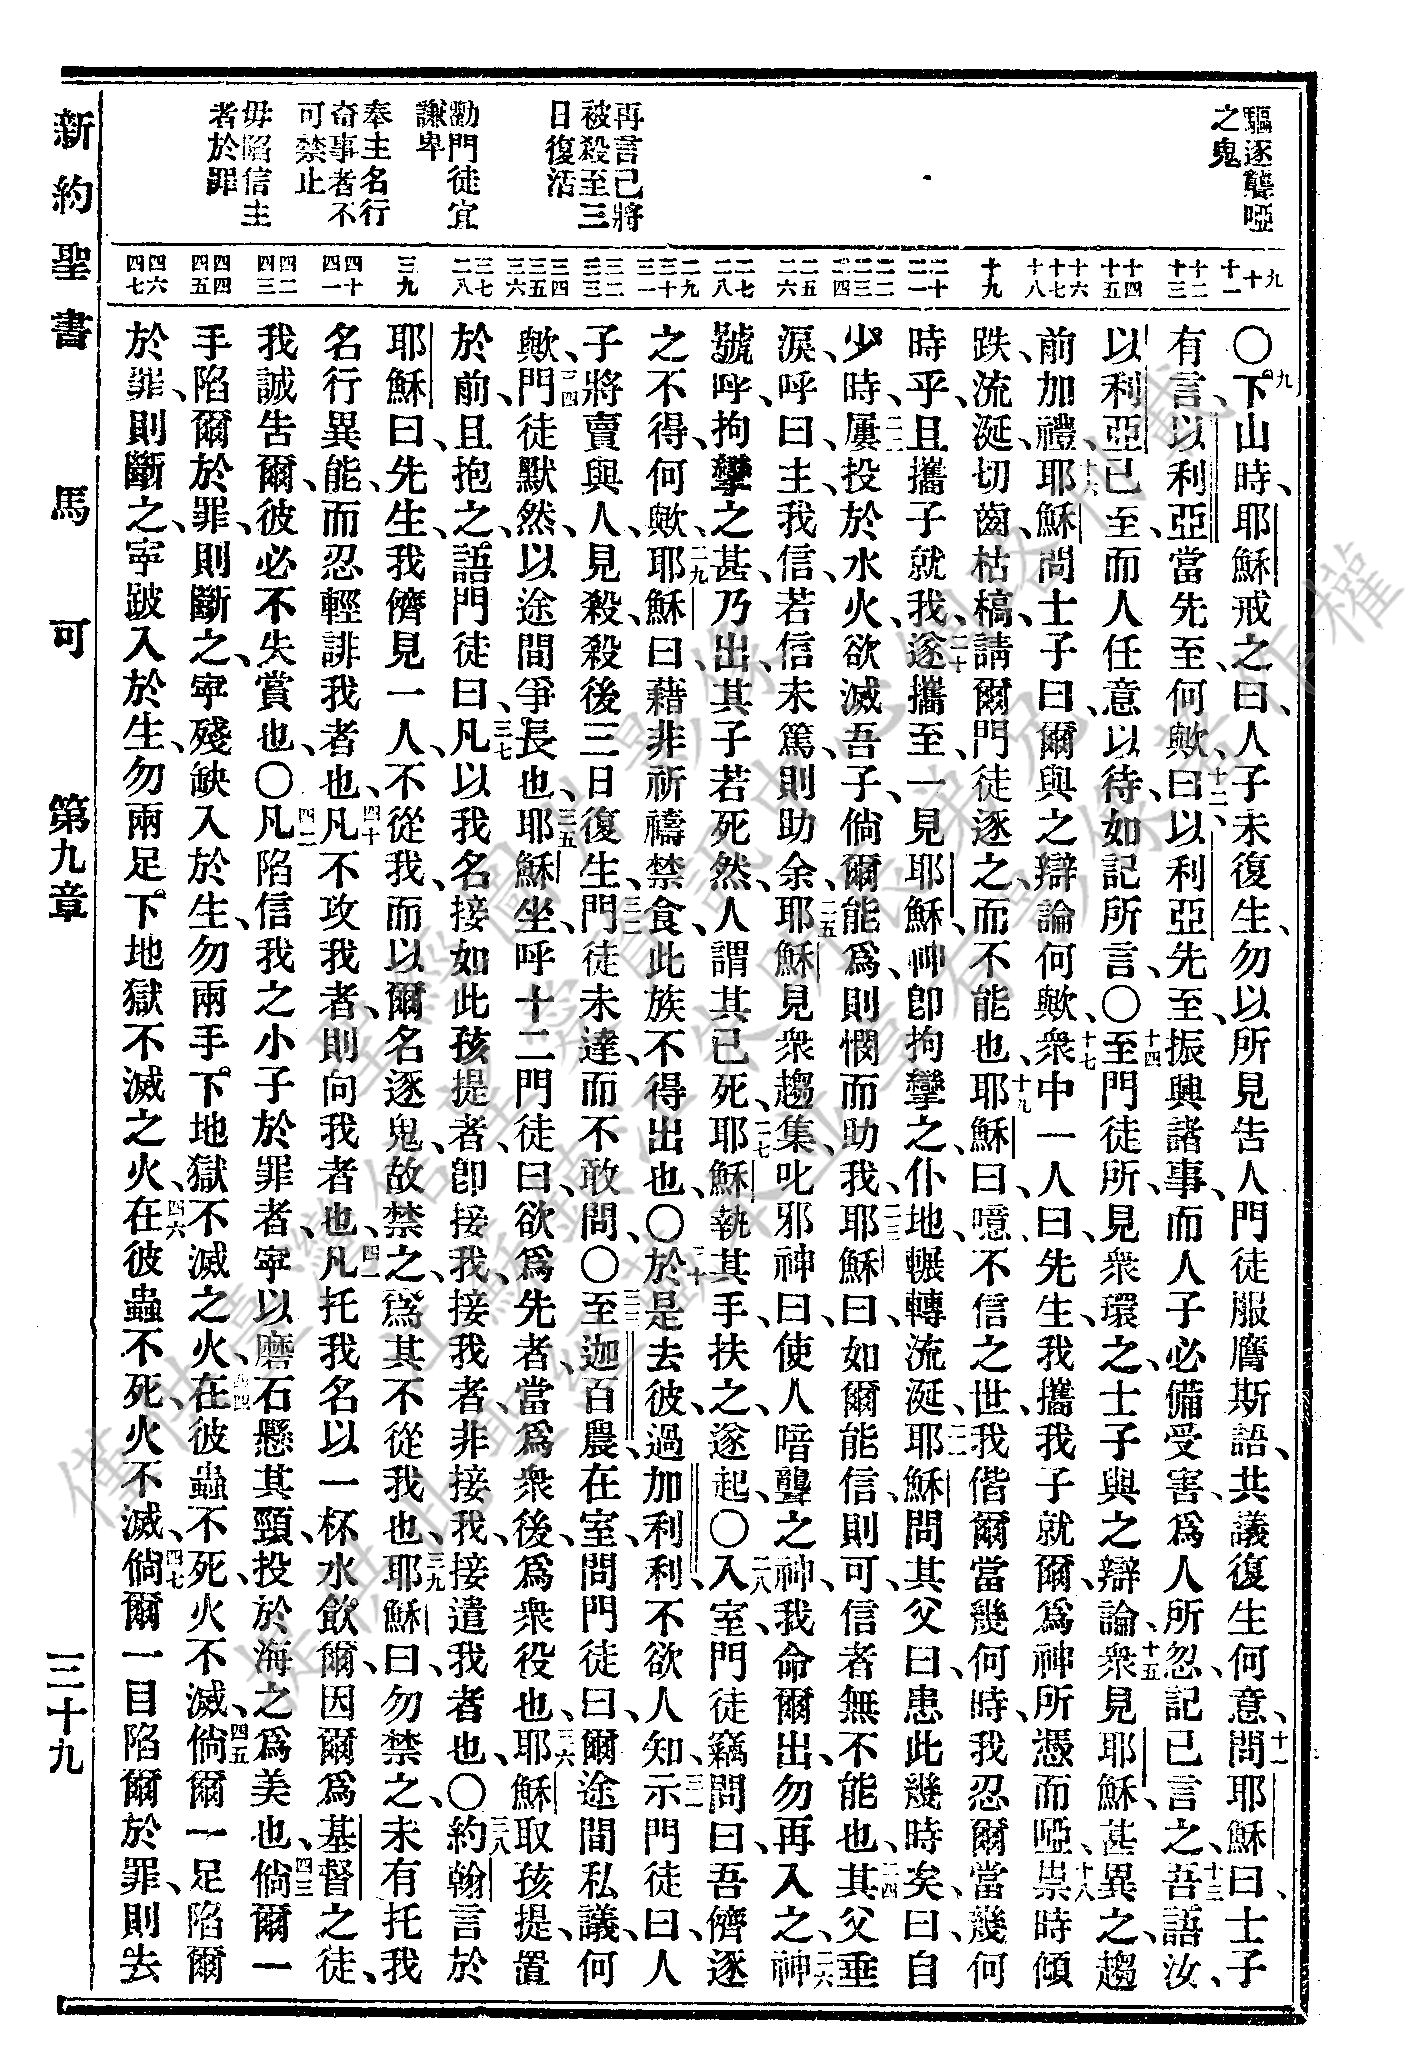 驅逐聾啞
之鬼
再言己將
被殺至三
日復活
勸門徒宜
謙卑
奉主名行
奇事者不
可禁止
毋陷信主
者於罪
九 十 十一
十二 十三
十四 十五
十六 十七 十八
十九
二十 二一
二二 二三 二四
二五 二六
二七 二八
二九 三十 三一
三二 三三
三四 三五 三六
三七 三八
三九
四十 四一
四二 四三
四四 四五
四六 四七
〇九下山時、耶穌戒之曰、人子未復生、勿以所見告人、門徒服膺斯語、共議復生何意、十一問耶穌曰、士子
有言、以利亞當先至、何歟、十二曰、以利亞先至、振興諸事、而人子必備受害、爲人所忽、記已言之、十三吾語汝、
以利亞已至、而人任意以待、如記所言、〇十四至門徒所、見衆環之、士子與之辯論、十五衆見耶穌、甚異之、趨
前加禮、十六耶穌問士子曰、爾與之辯論何歟、十七衆中一人曰、先生、我攜我子就爾、爲神所憑而啞、十八祟時傾
跌、流涎、切齒、枯槁、請爾門徒逐之、而不能也、十九耶穌曰、噫、不信之世、我偕爾當幾何時、我忍爾當幾何
時乎、且攜子就我、二十遂攜至、一見耶穌、神卽拘攣之、仆地、輾轉流涎、二一耶穌問其父曰、患此幾時矣、曰、自
少時、二二屢投於水火、欲滅吾子、倘爾能爲、則憫而助我、二三耶穌曰、如爾能信則可、信者無不能也、二四其父垂
淚、呼曰、主、我信、若信未篤、則助余、二五耶穌見衆趨集、叱邪神曰、使人喑聾之神、我命爾出、勿再入之、二六神
號呼、拘攣之甚、乃出、其子若死然、人謂其已死、二七耶穌執其手、扶之、遂起、〇二八入室、門徒竊問曰、吾儕逐
之不得、何歟、二九耶穌曰、藉非祈禱禁食、此族不得出也、〇三十於是去彼、過加利利、不欲人知、三一示門徒曰、人
子將賣與人、見殺、殺後三日復生、三二門徒未達、而不敢問、〇三三至迦百農、在室、問門徒曰、爾途間私議何
歟、三四門徒默然、以途間爭長也、三五耶穌坐、呼十二門徒曰、欲爲先者、當爲衆後、爲衆役也、三六耶穌取孩提、置
於前、且抱之、語門徒曰、三七凡以我名接如此孩提者、卽接我、接我者、非接我、接遣我者也、〇三八約翰言於
耶穌曰、先生、我儕見一人、不從我、而以爾名逐鬼、故禁之、爲其不從我也、三九耶穌曰、勿禁之、未有托我
名行異能、而忍輕誹我者也、四十凡不攻我者、則向我者也、四一凡托我名、以一杯水飮爾、因爾爲基督之徒、
我誠告爾、彼必不失賞也、〇四二凡陷信我之小子於罪者、寧以磨石懸其頸、投於海之爲美也、四三倘爾一
手陷爾於罪、則斷之、寧殘缺入於生、勿兩手下地獄不滅之火、四四在彼蟲不死、火不滅、四五倘爾一足陷爾
於罪、則斷之、寧跛入於生、勿兩足下地獄不滅之火、四六在彼蟲不死、火不滅、四七倘爾一目陷爾於罪、則去
新約聖書 馬可 第九章 三十九